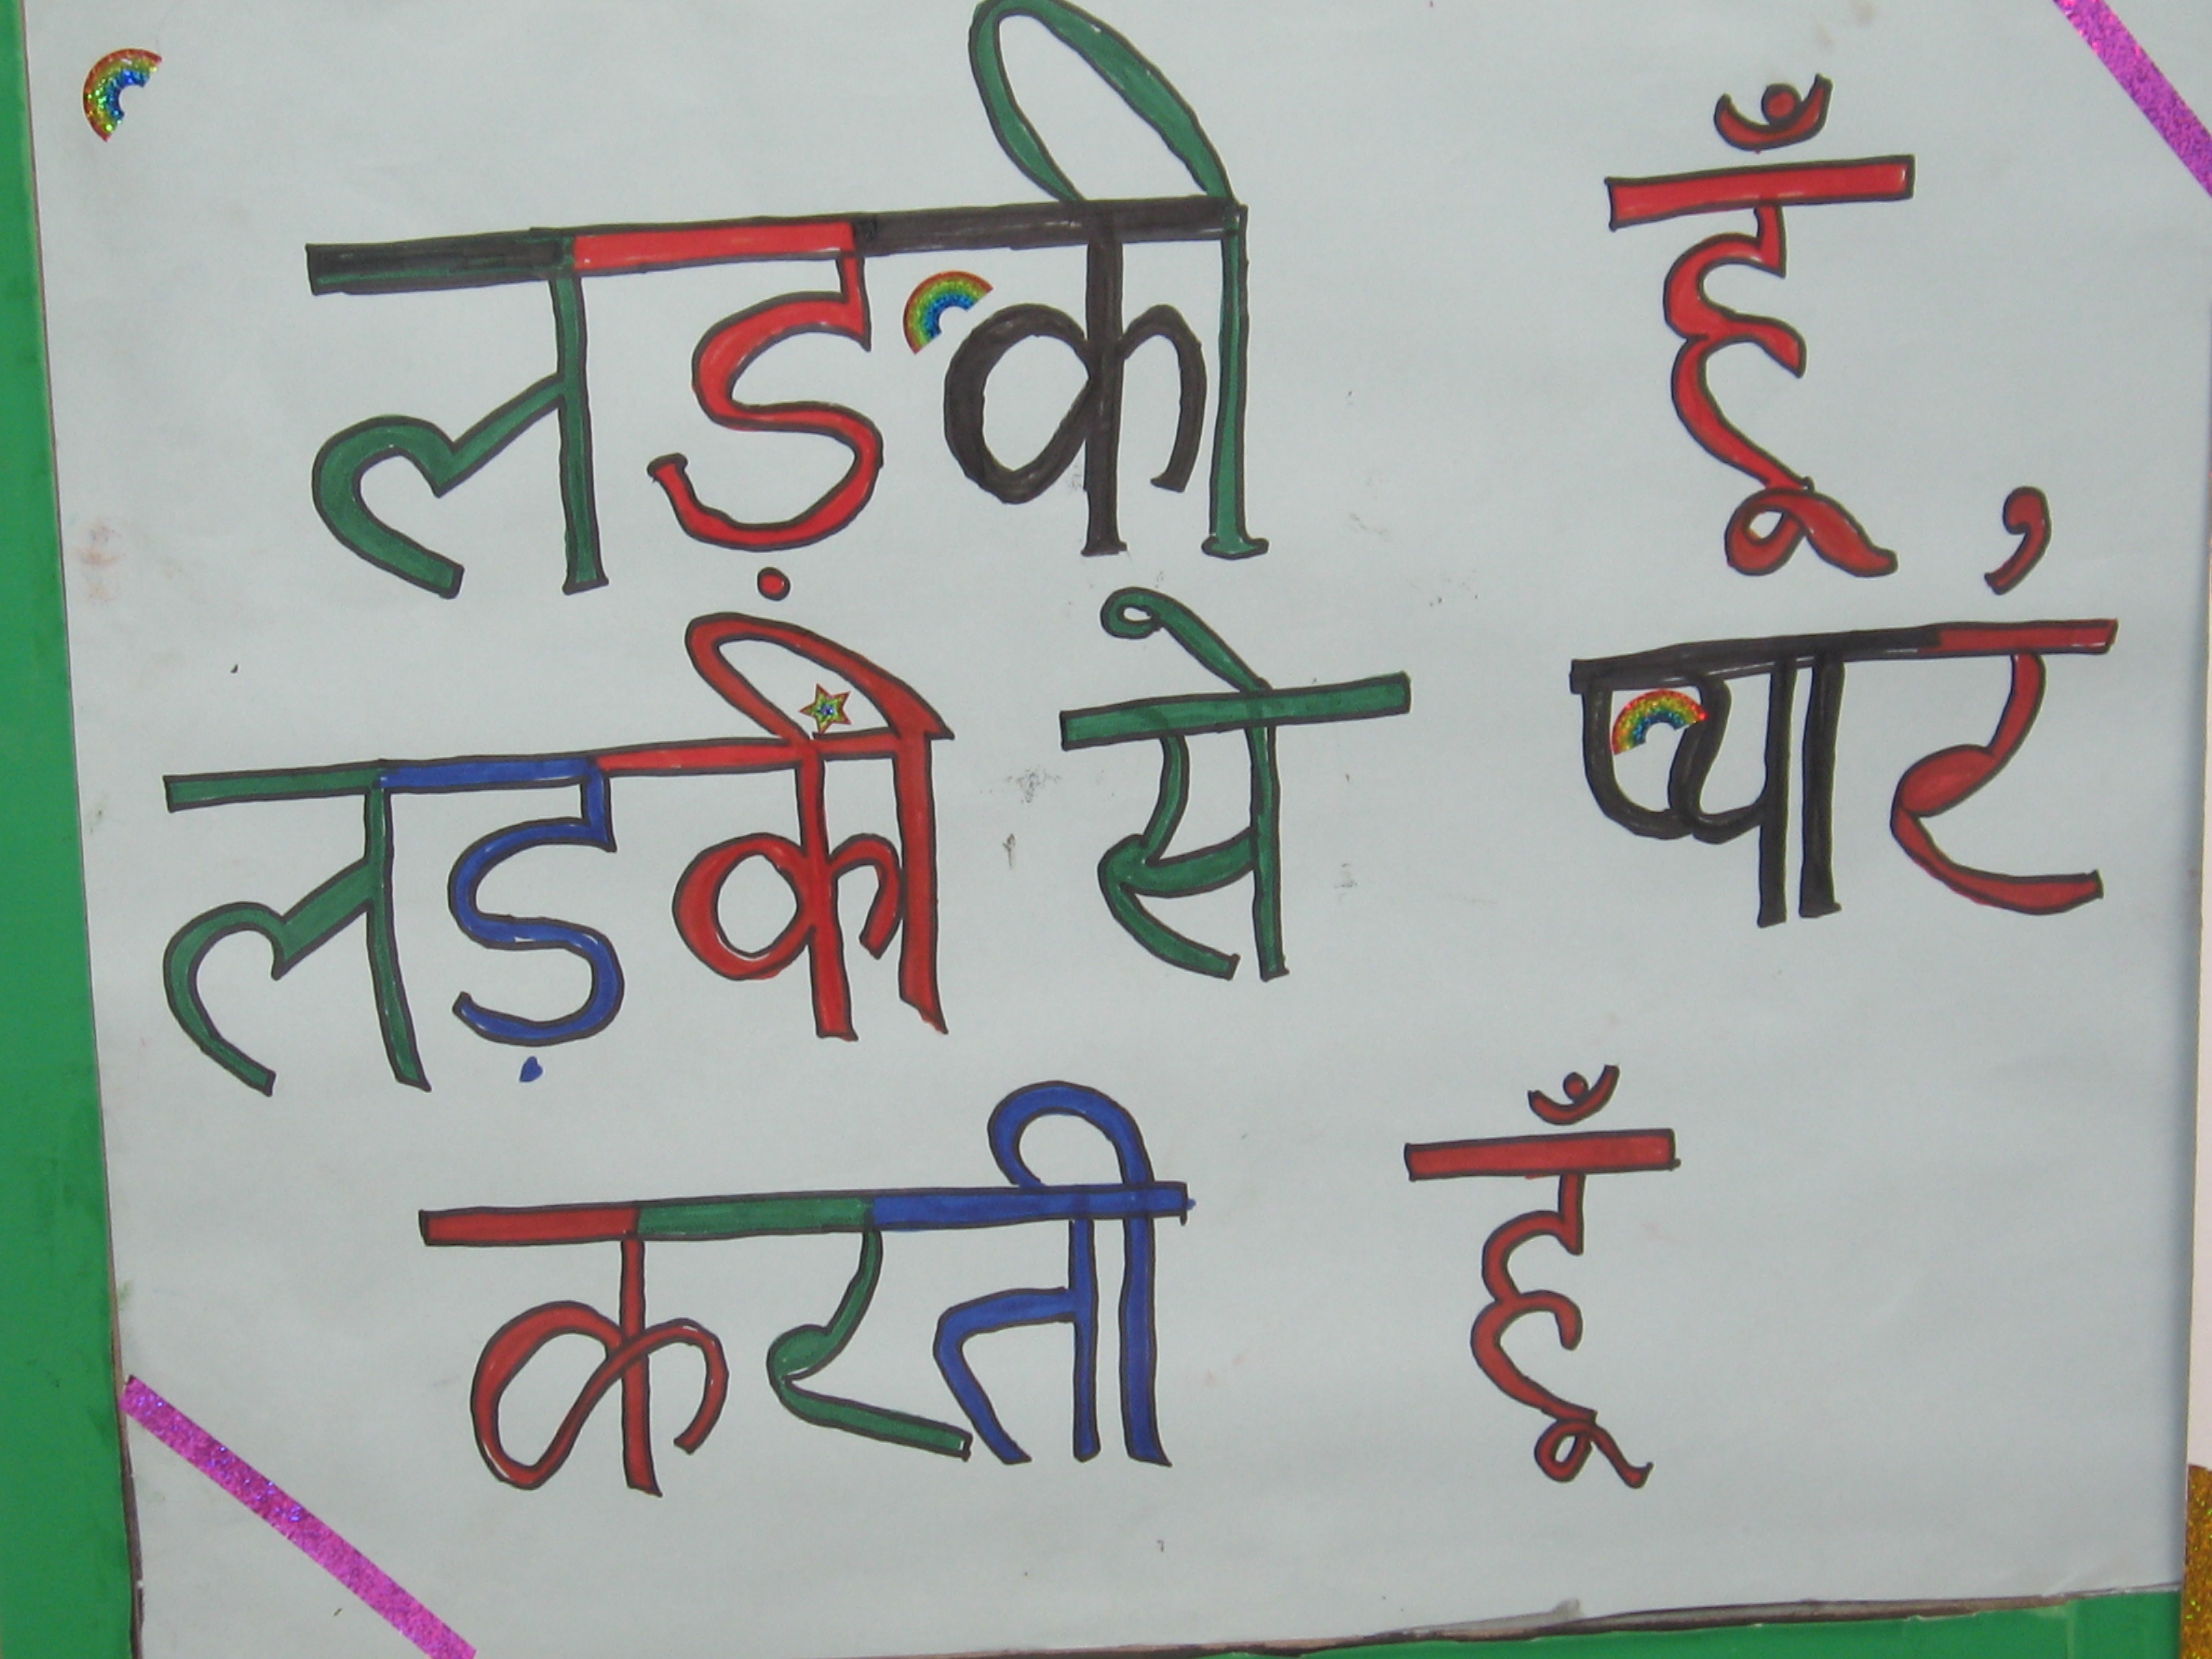 लड़की हूँ,
लड़की से प्यार
करती हूँ